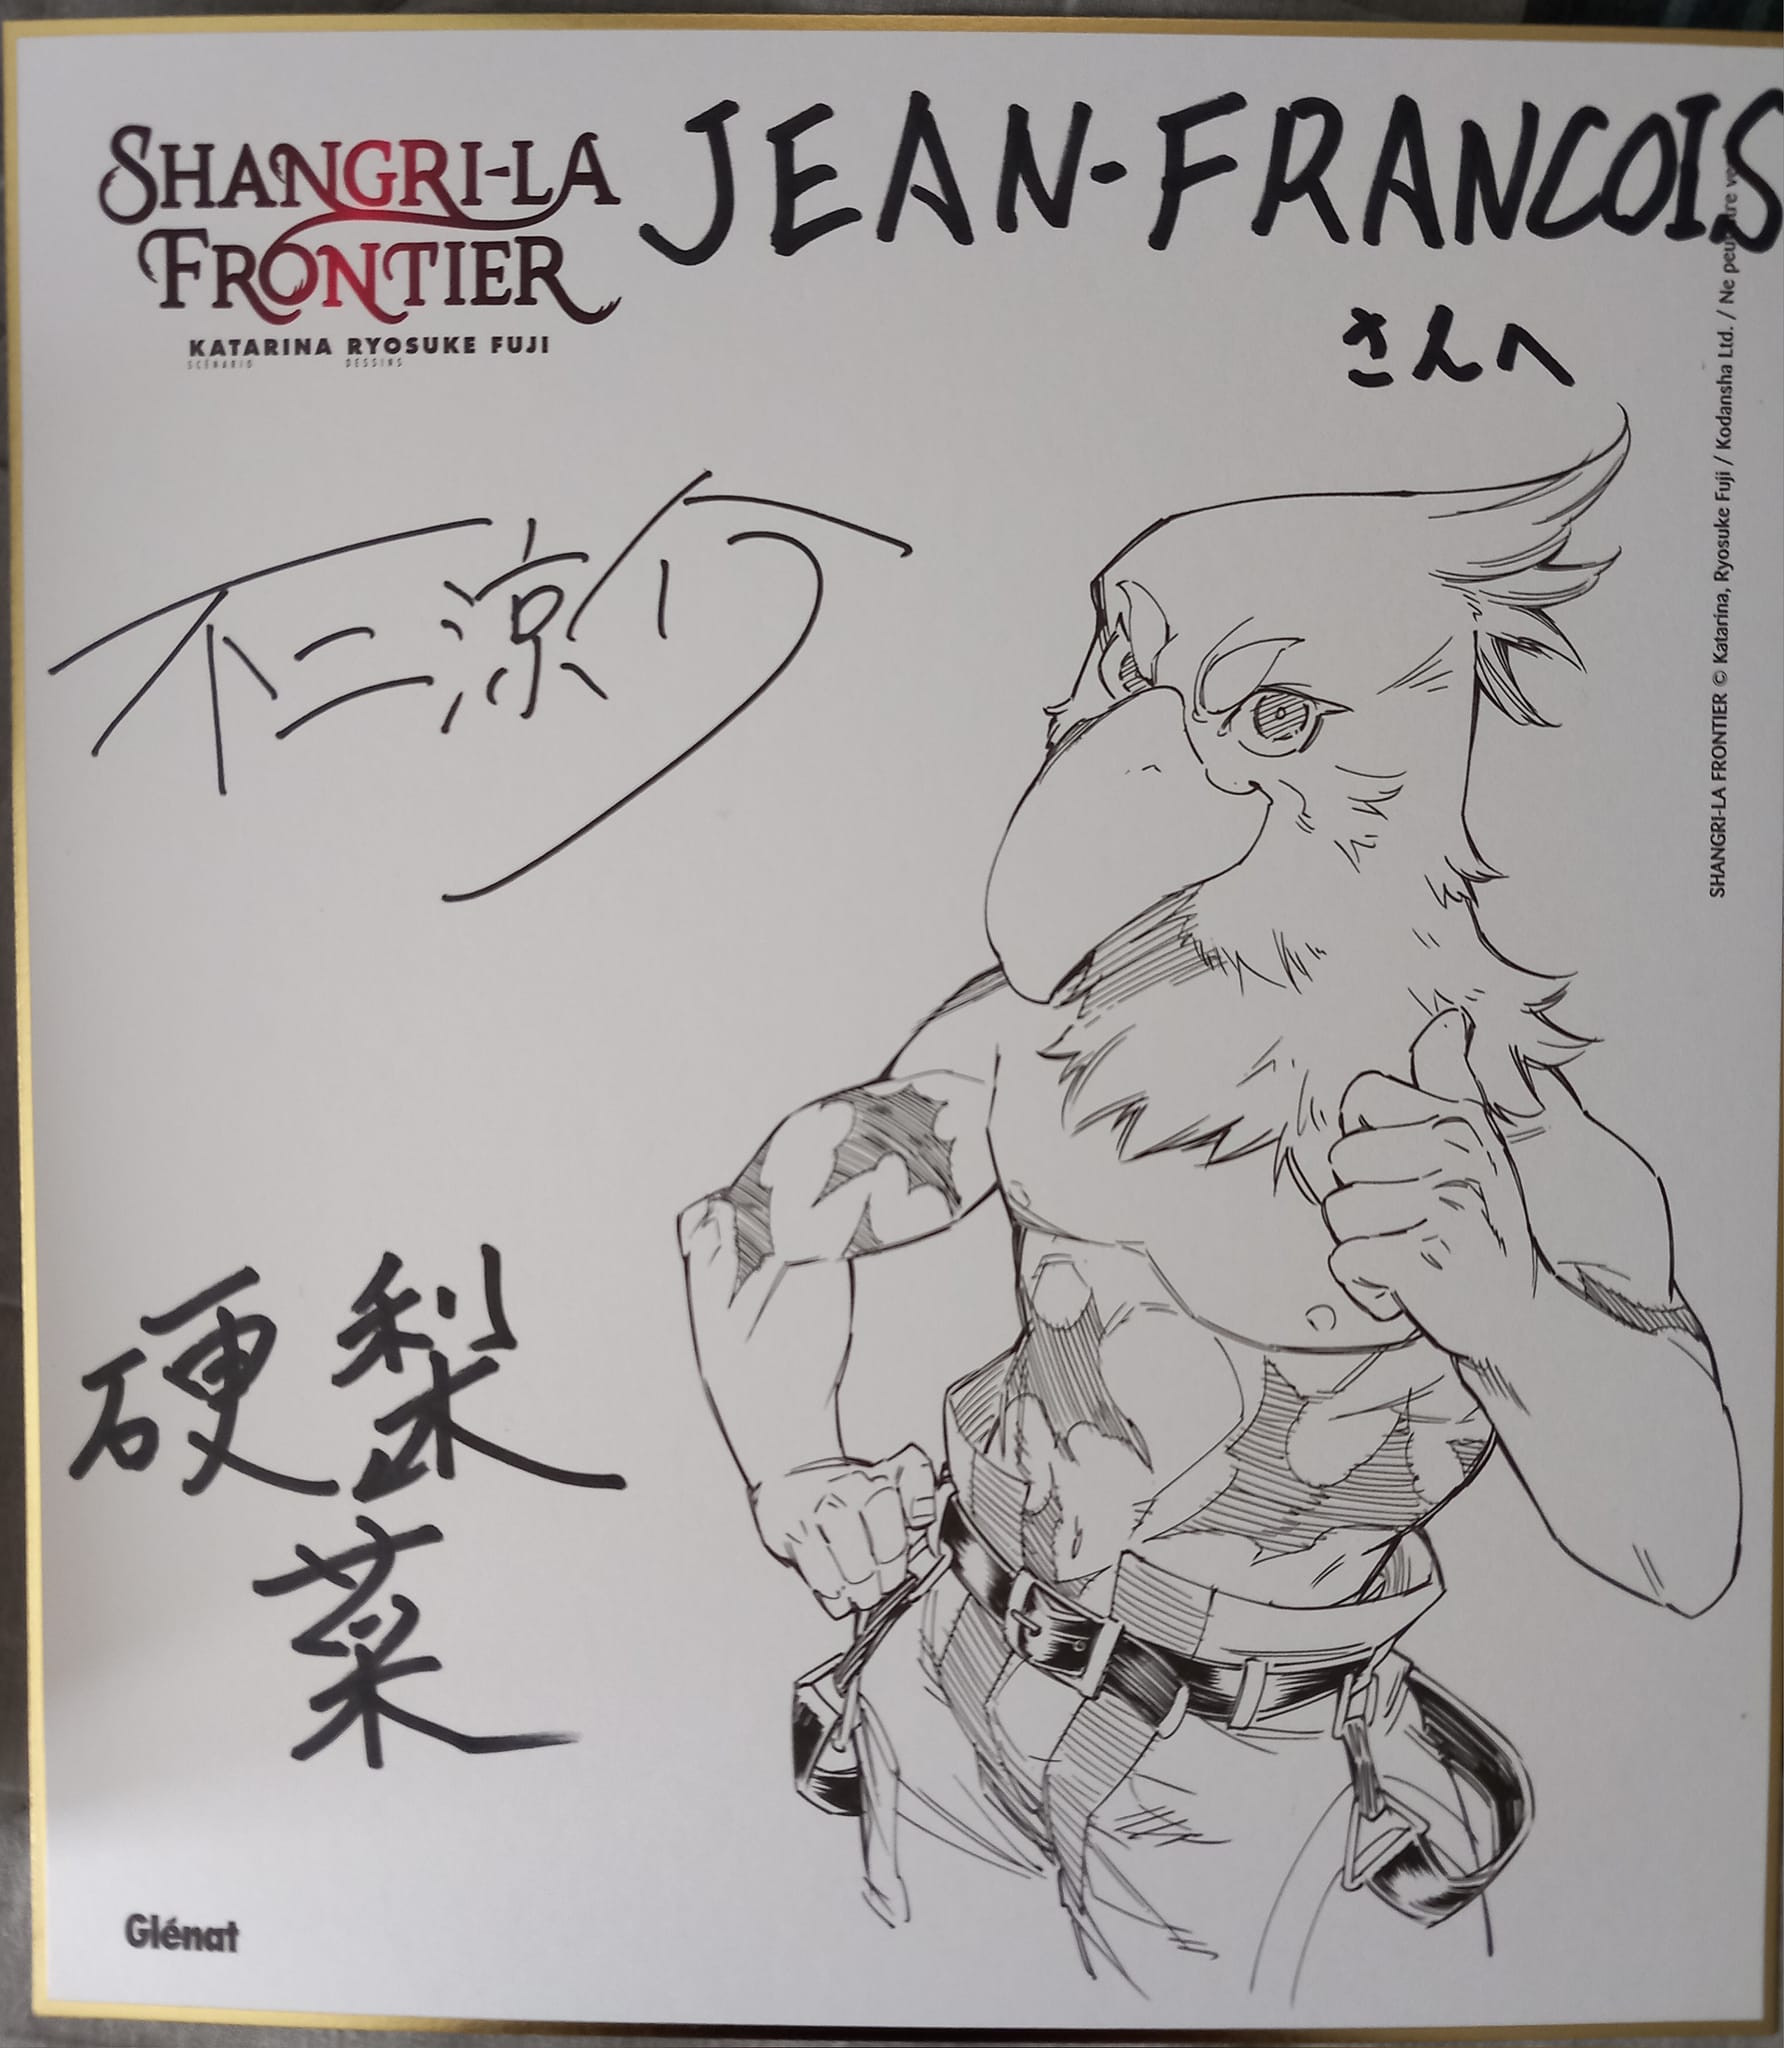 SHANGRI-LA
FRONTIER
KATARINA RYOSUKE FUJI
SCÉNARIO DESSINS
JEAN-FRANCOIS
さんへ
不二涼介
硬梨菜
SHANGRI-LA FRONTIER © Katarina, Ryosuke Fuji / Kodansha Ltd. / Ne peut être
Glénat